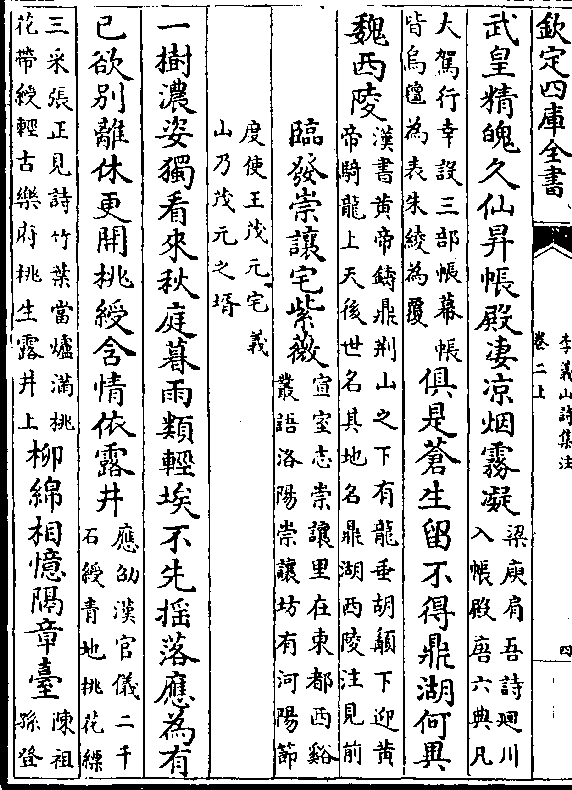 欽定四庫全書
李義山詩集注
卷二上
四
武皇精魄久仙昇帳殿凄凉烟霧凝
梁庾肩吾詩廻川
入帳殿唐六典凡
大駕行幸設三部帳幕帳
皆烏氊為表朱綾為覆
俱是蒼生留不得鼎湖何異
魏西陵
漢書黄帝鑄鼎荆山之下有龍垂胡顛下迎黄
帝騎龍上天後世名其地名鼎湖西陵注見前
臨發崇讓宅紫薇
宣室志崇讓里在東都西谿
叢語洛陽崇讓坊有河陽節
度使王茂元宅義
山乃茂元之壻
一樹濃姿獨看來秋庭暮雨類輕埃不先揺落應為有
已欲別離休更開桃綬含情依露井
應劭漢官儀二千
石綬青地桃花縹
三采張正見詩竹葉當爐滿桃
花帶綬輕古樂府桃生露井上
柳綿相憶隔章臺
陳祖
孫登